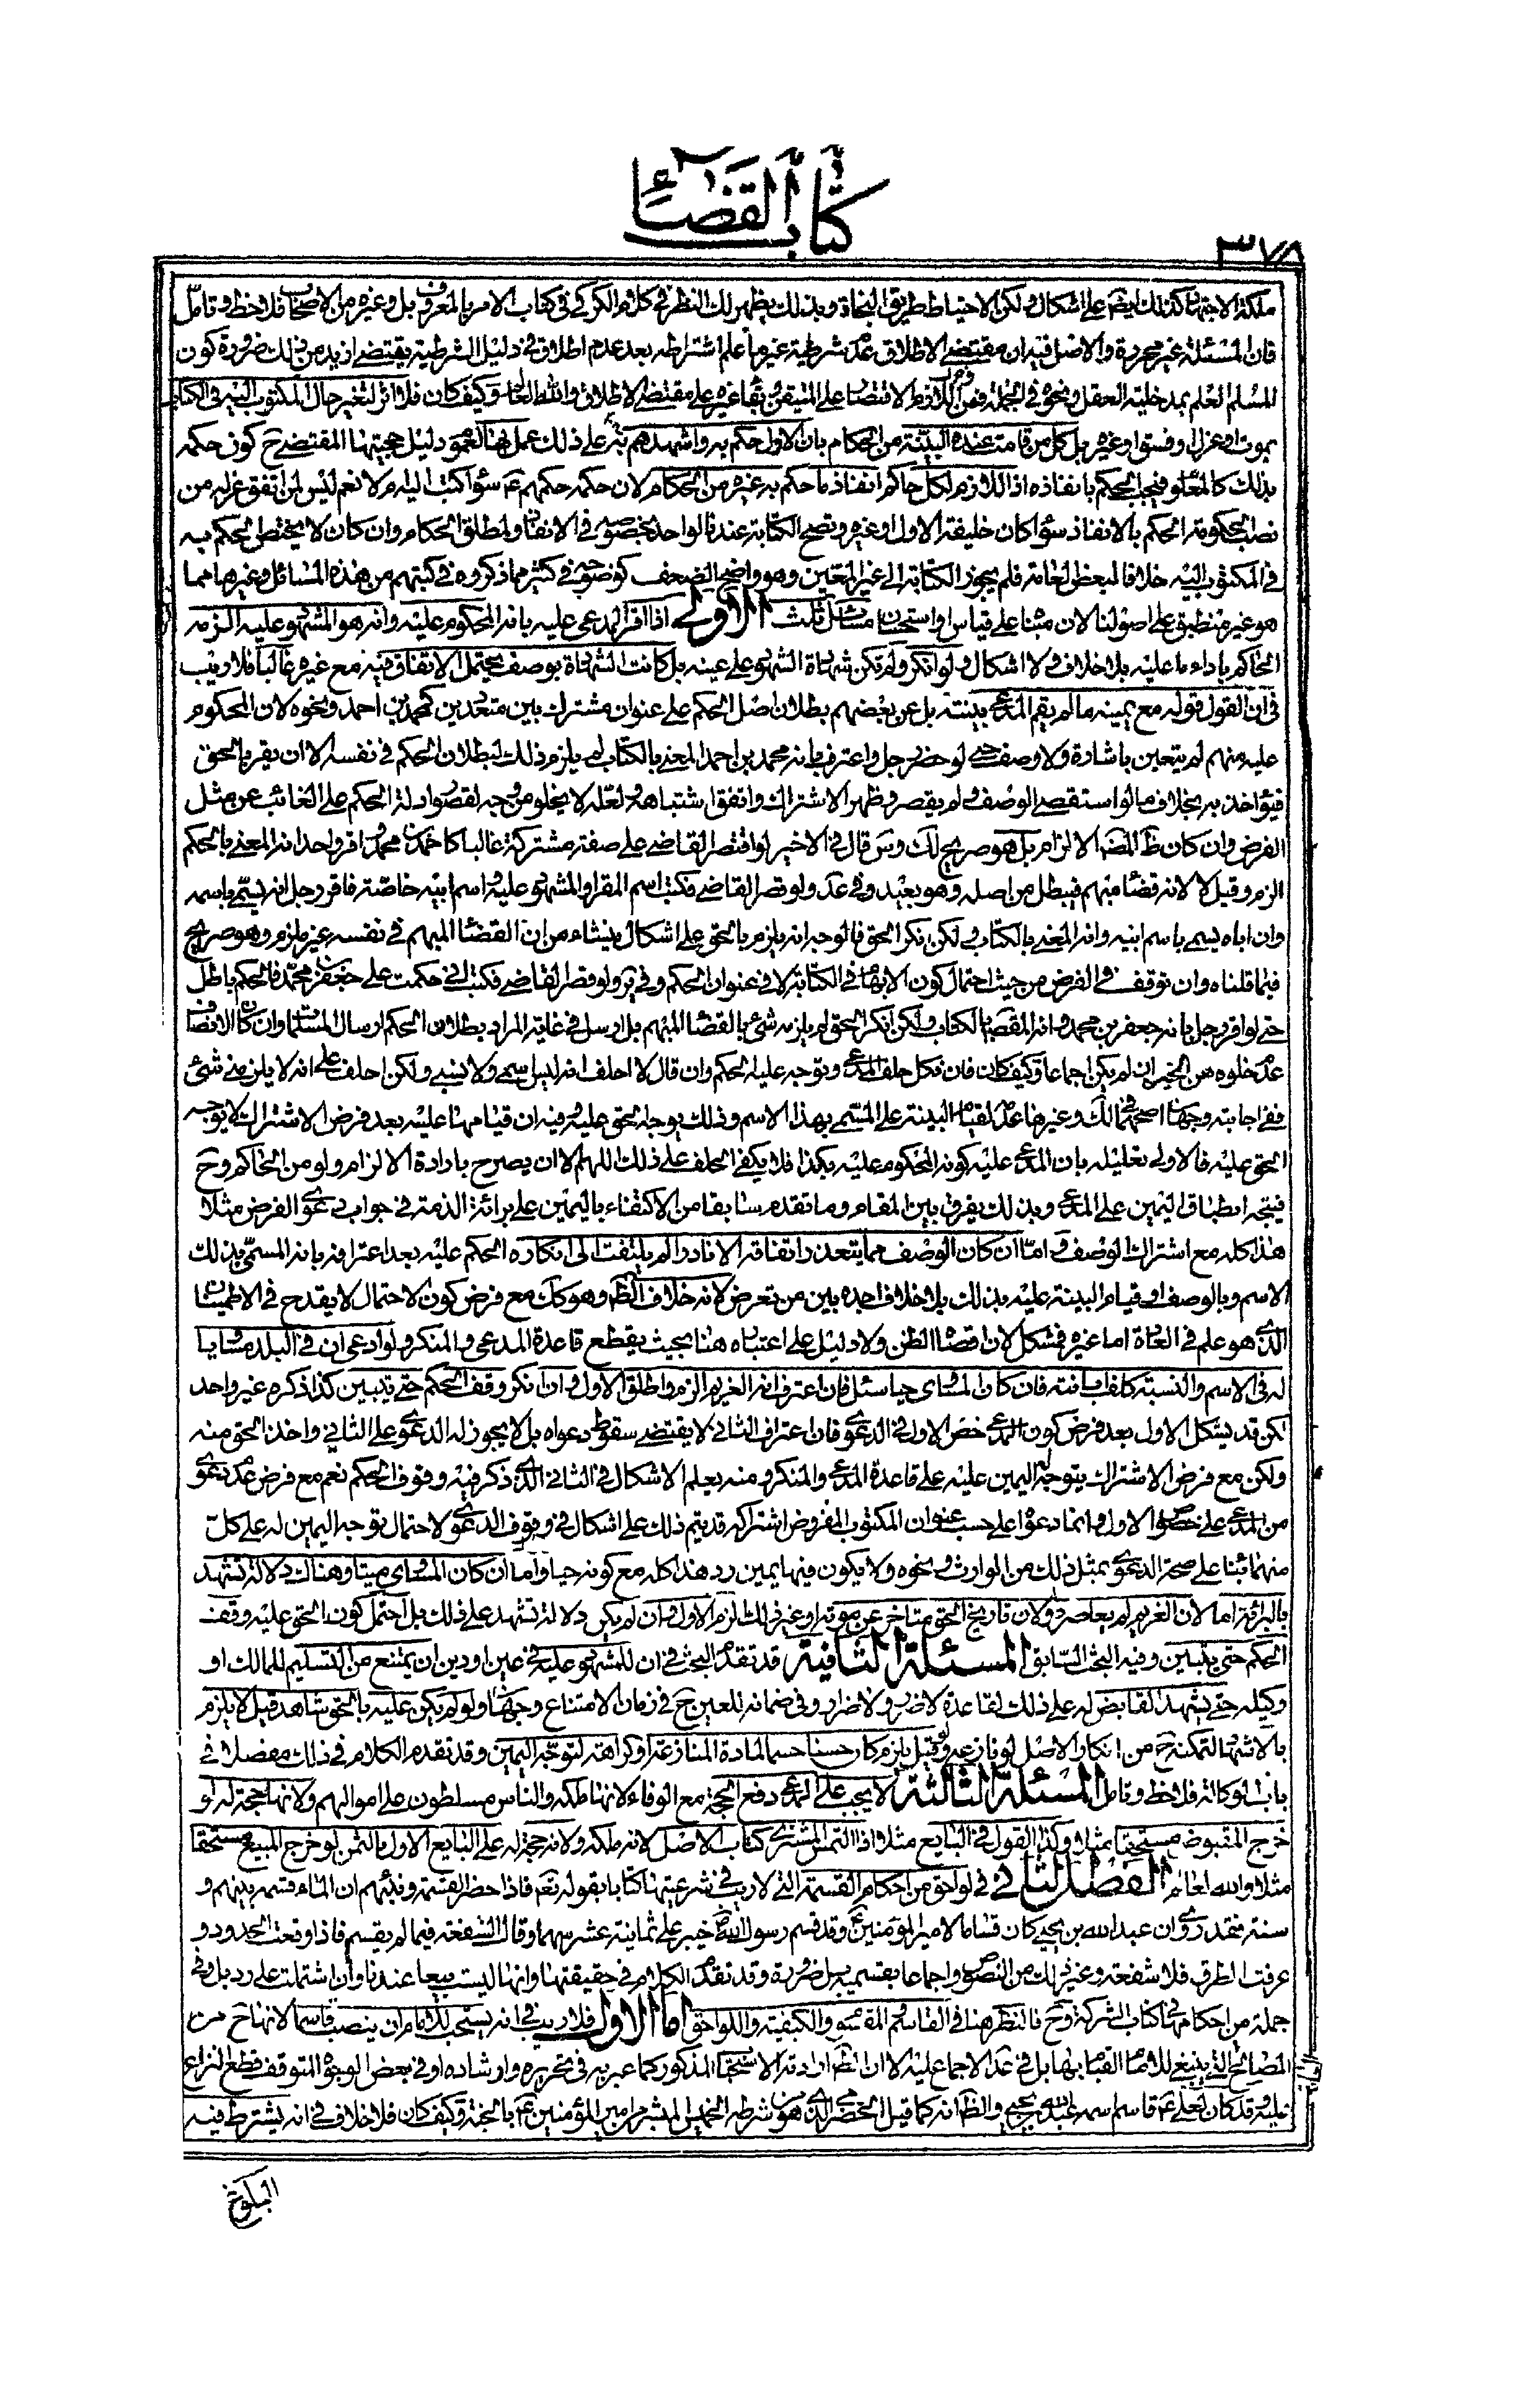 كتاب القضاء
٣٧٨
ملكة الاجتهاد كذلك ايضا على اشكال ولكن الاحتياط طريق النجاة وبذلك يظهر لك النظر في كلام الكركي في كتاب الامر بالمعروف بل وغيره من الاصحاب فلاحظ وتامل
فان المسئلة غير محررة والاصل فيه ان مقتضى الاطلاق عدم شرطية غير ما علم اشتراطه بعد عدم اطلاق في دليل الشرطية يقتضي ازيد من ذلك ضرورة كون
المسلم العلم بمدخلية العقل ونحوه في الجملة فمن اللازم الاقتصار على المتيقن وبقاء غيره على مقتضى الاطلاق والله العالم وكيف كان فلا اثر لتغير حال المكتوب اليه في الكتاب
بموت او عزل او فسق او غيره بل كل من قامت عنده البينة من الحكام بان الاول حكم به واشهدهم به على ذلك عمل بها لعموم دليل حجيتها المقتضي ح كون حكمه
بذلك كالمعلوم فيجب الحكم بانفاذه اذ اللازم لكل حاكم انفاذ ما حكم به غيره من الحكام لان حكمه حكمهم ع سواء كتب اليه ام لا نعم ليس لمن اتفق عزله من
نصب الحكومة الحكم بالانفاذ سواء كان خليفة الاول او غيره وتصح الكتابة عندنا لواحد بخصوصه في الانفاذ ولمطلق الحكام وان كان لا يختص الحكم به
في المكتوب اليه خلافا لبعض العامة فلم يجوز الكتابة الى غير المعين وهو واضح الضعف كوضوحه في كثير مما ذكروه في كتبهم من هذه المسائل وغيرها مما
هو غير منطبق على اصولنا لان مبناه على قياس او استحسان مسائل ثلث الاولى اذا اقر المدعى عليه بانه المحكوم عليه وانه هو المشهود عليه الزمه
الحاكم باداء ما عليه بلا خلاف ولا اشكال ولو انكر ولم تكن شهادة الشهود على عينه بل كانت الشهادة بوصف يحتمل الاتفاق فيه مع غيره غالبا فلا ريب
في ان القول قوله مع يمينه ما لم يقم المدعي بينة بل عن بعضهم بطلان اصل الحكم على عنوان مشترك بين متعددين كمحمد بن احمد ونحوه لان المحكوم
عليه منهم لم يتعين باشارة ولا وصف حتى لو حضر رجل واعترف بانه محمد بن احمد المعني بالكتاب لم يلزم ذلك لبطلان الحكم في نفسه الا ان يقر بالحق
فيؤاخذ به بخلاف ما لو استقصى الوصف ولم يقصر فظهر الاشتراك واتفق اشتباهه ولعله لا يخلو من وجه لقصور ادلة الحكم على الغائب عن مثل
الفرض وان كان ظ المصنف الالزام بل هو صريح لك وس قال في الاخير لو اقتصر القاضي على صفة مشتركة غالبا كاحمد بن محمد فاقر واحد انه المعني بالحكم
الزم وقيل لا لانه قضاء مبهم فيبطل من اصله وهو بعيد وفي عد ولو قصر القاضي فكتب اسم المقر او المشهود عليه واسم ابيه خاصة فاقر رجل انه يسمى باسمه
وان اباه يسمى باسم ابيه وانه المعني بالكتاب ولكن نكر الحق فالوجه انه يلزم بالحق على اشكال ينشاء من ان القضاء المبهم في نفسه غير ملزم وهو صريح
فيما قلناه وان توقف في الفرض من حيث احتمال كون الابهام في الكتابة لا في عنوان الحكم وفي ير ولو قصر القاضي فكتب اني حكمت على جعفر بن محمد فالحكم باطل
حتى لو اقر رجل بانه جعفر بن محمد وانه المقصود بالكتاب ولكن انكر الحق لم يلزمه شيء بالقضاء المبهم بل ارسل في غاية المراد بطلان الحكم ارسال المسلمات وان كان الانصاف
عدم خلوه من الخبر ان لم يكن اجماعا وكيف كان فان نكل حلف المدعي وتوجه عليه الحكم وان قال لا احلف انه ليس اسمي ولا نسبي ولكن احلف على انه لا يلزمني شيء
ففي اجابته وجهان اصحهما في لك وغيرها عدم القبول لقيام البينة على المسمى بهذا الاسم وذلك يوجه الحق عليه وفيه ان قيامها عليه بعد فرض الاشتراك لا يوجه
الحق عليه فالاولى تعليله بان المدعى عليه كونه المحكوم عليه بكذا فلا يكفي الحلف على ذلك اللهم الا ان يصرح بارادة الالزام ولو من الحاكم وح
فيتجه انطباق اليمين على المدعى وبذلك يفرق بين المقام وما تقدم سابقا من الاكتفاء باليمين على برائة الذمة في جواب دعوى الفرض مثلا
هذا كله مع اشتراك الوصف واما ان كان الوصف مما يتعذر اتفاقه الا نادرا لم يلتفت الى انكاره الحكم عليه بعد اعترافه بانه المسمى بذلك
الاسم وبالوصف او قيام البينة عليه بذلك بلا خلاف اجده بين من تعرض له لانه خلاف الظاهر وهو كك مع فرض كون الاحتمال لا يقدح في الاطمينان
الذي هو علم في العادة اما غيره فمشكل لان اقصاه الظن ولا دليل على اعتباره هنا بحيث يقطع قاعدة المدعي والمنكر ولو ادعى ان في البلد مساويا
له في الاسم والنسبة كلف ابانته فان كان المساوي حيا سئل فان اعترف انه الغريم الزم واطلق الاول وان انكر وقف الحكم حتى يتبين كذا ذكره غير واحد
لكن قد يشكل الاول بعد فرض كون المدعي خص الاول في الدعوى فان اعتراف الثاني لا يقتضي سقوط دعواه بل لا يجوز له الدعوى على الثاني واخذ الحق منه
ولكن مع فرض الاشتراك يتوجه له اليمين عليه على قاعدة المدعي والمنكر ومنه يعلم الاشكال في الثاني الذي ذكر فيه وقوف الحكم نعم مع فرض عدم دعوى
من المدعي على خصوص الاول وانما دعواه على حسب عنوان المكتوب المفروض اشتراكه قد يتم ذلك على اشكال في وقوف الدعوى لاحتمال توجه اليمين له على كل
منهما بناء على صحة الدعوى بمثل ذلك من الوارث ونحوه ولا يكون فيها يمين رد هذا كله مع كونه حيا واما ان كان المساوي ميتا وهناك دلالة تشهد
بالبرائة اما لان الغريم لم يعاصره او لان تاريخ الحق متاخر عن موته او غير ذلك الزم الاول وان لم يكن دلالة تشهد على ذلك بل احتمل كون الحق عليه وقف
الحكم حتى يتبين وفيه البحث السابق المسئلة الثانية قد تقدم البحث في ان للمشهود عليه في عين او دين ان يمتنع من التسليم للمالك او
وكيله حتى يشهد القابض له على ذلك لقاعدة لا ضرر ولا ضرار وفي ضمانه للعين ح في زمان الامتناع وجهان ولو لم يكن عليه بالحق شاهد قيل لا يلزم
بالاشهاد لتمكنه ح من انكار الاصل لو نازعه ولو قيل يلزم كان حسنا حسما لمادة المنازعة او كراهة لتوجه اليمين وقد تقدم الكلام في ذلك مفصلا في
باب الوكالة فلاحظ وتامل المسئلة الثالثة لا يجب على المدعي دفع الحجة مع الوفاء لانها ملكه والناس مسلطون على اموالهم ولانها حجة له لو
خرج المقبوض مستحقا مثلا وكذا القول في البايع مثلا اذا التمس المشتري كتاب الاصل لانه ملكه ولانه حجة له على البايع الاول بالثمن لو خرج المبيع مستحقا
مثلا والله العالم الفصل الثاني في لواحق من احكام القسمة التي لا ريب في شرعيتها كتابا بقوله تعم فاذا حضر القسمة ونبئهم ان الماء قسمة بينهم و
سنة فقد روى ان عبد الله بن يحيى كان قساما لامير المؤمنين ع وقد قسم رسول الله ص خيبر على ثمانية عشر سهما وقال الشفعة فيما لم يقسم فاذا وقعت الحدود و
عرفت الطرق فلا شفعة وغير ذلك من النصوص واجماعا بقسميه بل ضرورة وقد تقدم الكلام في حقيقتها وانها ليست بيعا عندنا وان اشتملت على رد بل وفي
جملة من احكامها في كتاب الشركة وح فالنظر هنا في القاسم والمقسوم والكيفية واللواحق اما الاول فلا ريب في انه يستحب للامام ان ينصب قاسما لانها ح من
المصالح التي ينبغي للامام القيام بها بل في عد الاجماع عليه الا ان الظاهر ارادته الاستحباب المذكور كما عبر به في تحريره وارشاده او في بعض الوجوه المتوقف قطع النزاع
عليه وقد كان لعلي ع قاسم اسمه عبد الله بن يحيى والظاهر انه كما قيل الحضرمي الذي هو من شرطة الخميس المبشر من امير المؤمنين ع بالجنة وكيف كان فلا خلاف في انه يشترط فيه
البلوغ